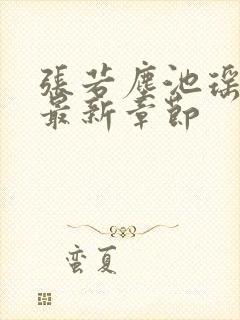 張若塵池瑶
最新章節
蛮夏